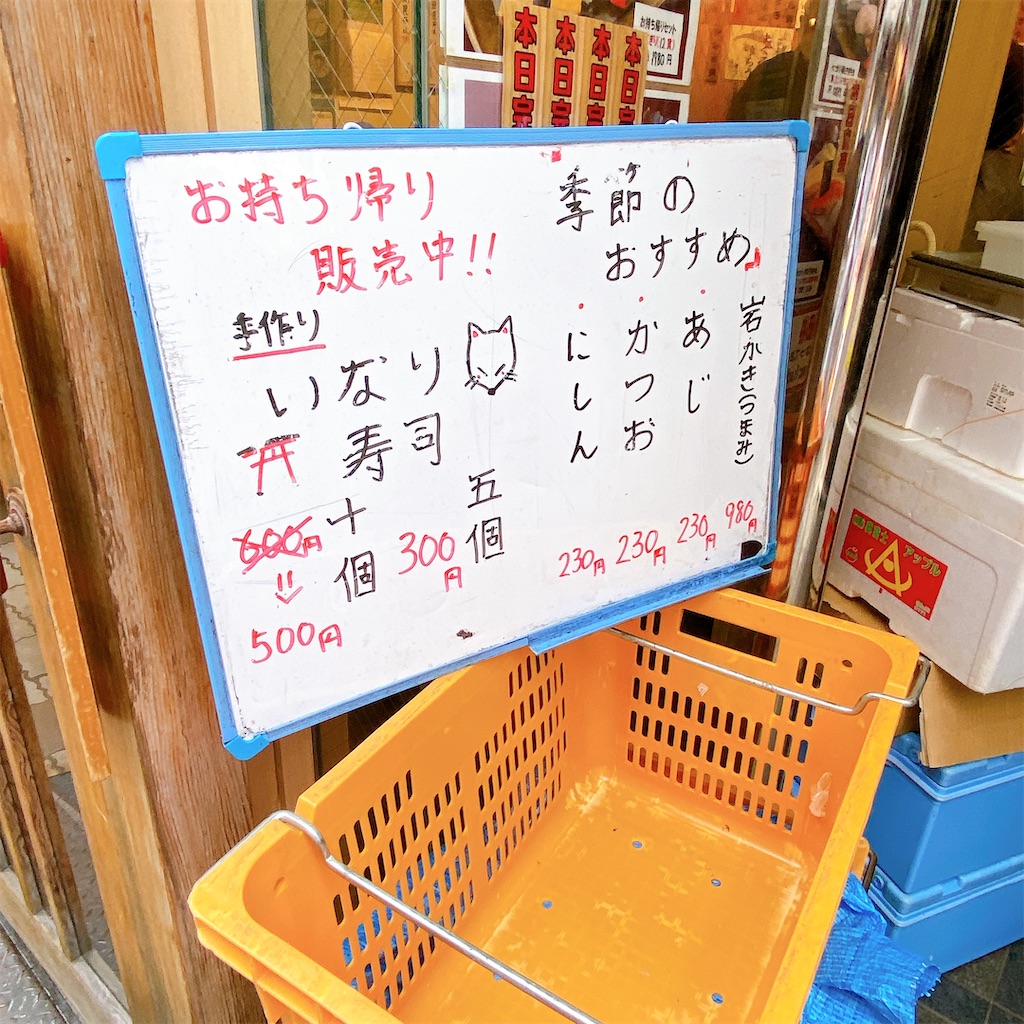 お持ち帰り
販売中!!
手作り
いなり寿司
五個
300円
十個
600円
!!
500円
季節の
おすすめ
岩かき(つまみ)
980円
・あじ
230円
・かつお
230円
・にしん
230円
本日
本日
本日
本日
お持ち帰りセット
アップル